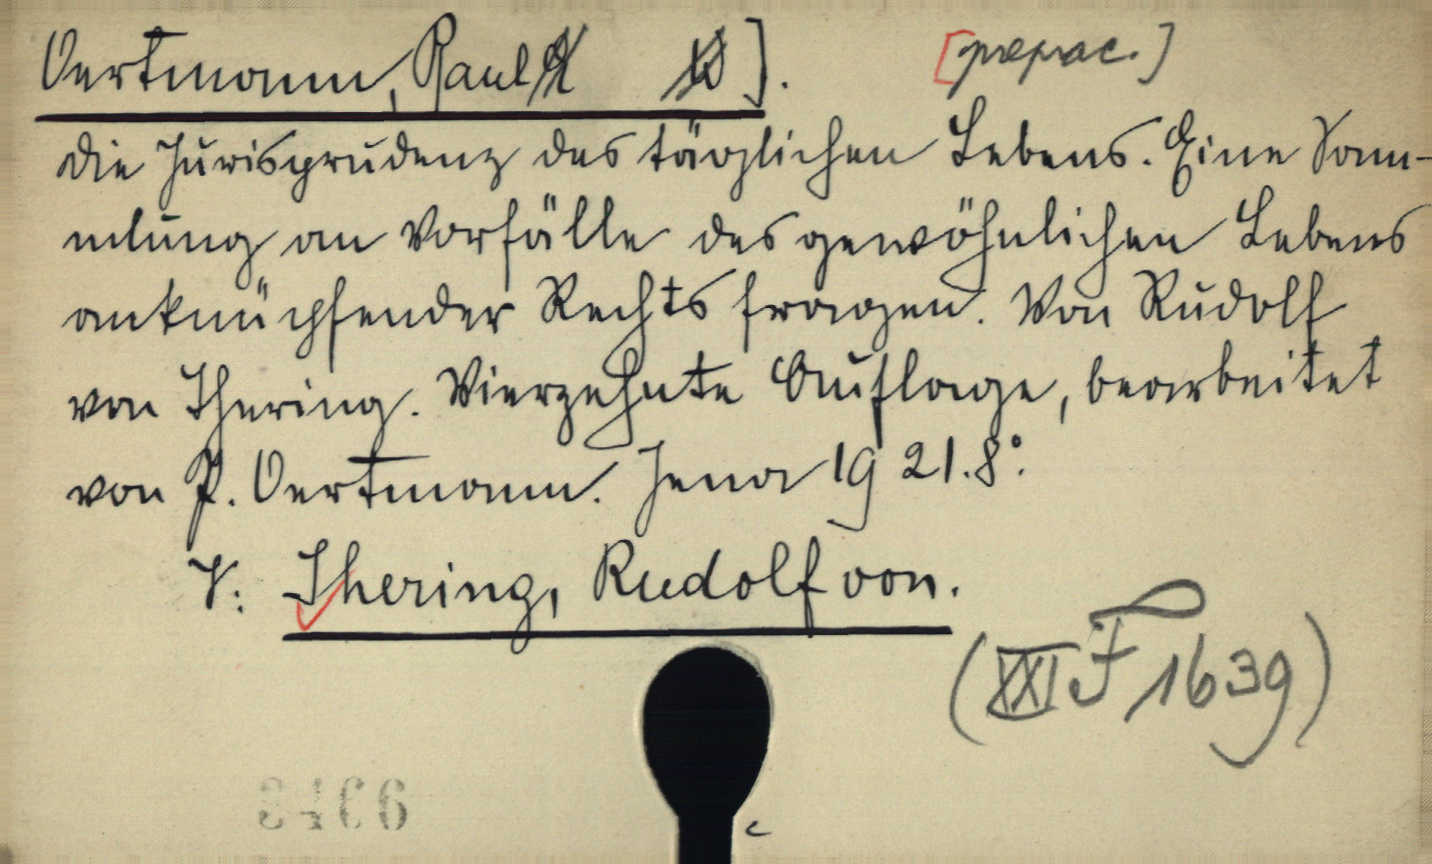 Oertmann, Paul ].
[przeprac.]
Die Jurisprudenz des täglichen Lebens. Eine Sam-
mlung an Vorfälle des gewöhnlichen Lebens
anknüpfender Rechtsfragen. Von Rudolf
von Ihering. Vierzehnte Auflage, bearbeitet
von P. Oertmann. Jena 1921. 8°.
V. Ihering, Rudolf von.
(XXI F 1639)
c